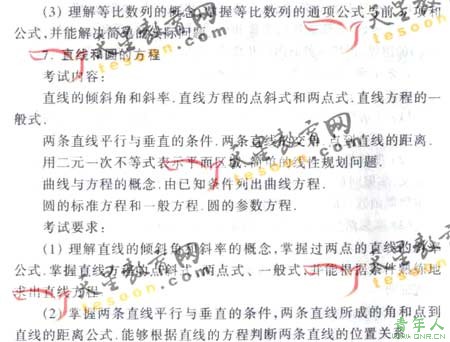 (3) 理解等比数列的概念,掌握等比数列的通项公式与前 项和
公式,并能解决简单的实际问题.
7. 直线和圆的方程
考试内容:
直线的倾斜角和斜率.直线方程的点斜式和两点式.直线方程的一
般式.
两条直线平行与垂直的条件.两条直线的交角.点到直线的距离.
用二元一次不等式表示平面区域.简单的线性规划问题.
曲线与方程的概念.由已知条件列出曲线方程.
圆的标准方程和一般方程.圆的参数方程.
考试要求:
(1) 理解直线的倾斜角和斜率的概念,掌握过两点的直线的斜率
公式.掌握直线方程的点斜式、两点式、一般式,并能根据条件熟练地
求出直线方程.
(2) 掌握两条直线平行与垂直的条件,两条直线所成的角和点到
直线的距离公式.能够根据直线的方程判断两条直线的位置关系.
天星教育网
tesoon.com
天星教育网
tesoon.com
天星教育网
tesoon.com
天星教育网
tesoon.com
青年人
WWW.QNR.CN